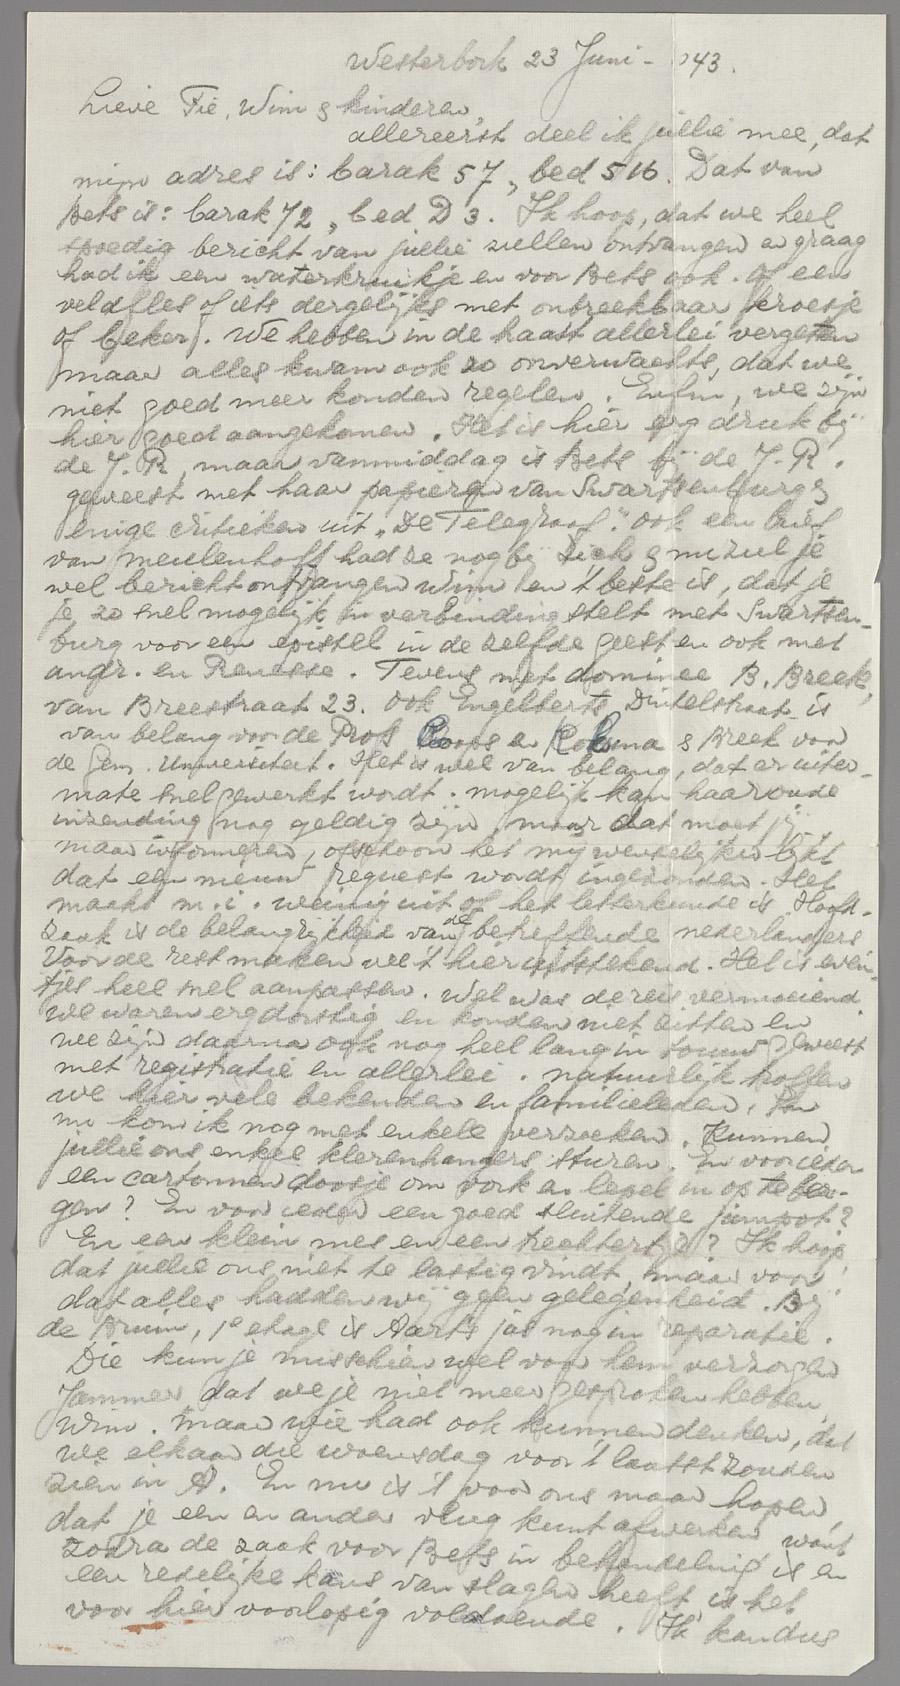 Westerbork 23 Juni - '43.
Lieve Fie, Wim & kinderen
allereerst deel ik jullie mee, dat
mijn adres is: barak 57, bed 516. Dat van
Bets is: barak 72, bed D 3. Ik hoop, dat we heel
spoedig bericht van jullie zullen ontvangen en graag
had ik een waterkruikje en voor Bets ook. Of een
veldfles of iets dergelijks met onbreekbaar kroesje
of beker. We hebben in de haast allerlei vergeten
maar alles kwam ook zo onverwachts, dat we
niet goed meer konden regelen. Enfin, we zijn
hier goed aangekomen. Het is hier erg druk bij
de J.R, maar vanmiddag is Bets bij de J.R.
geweest met haar papieren van Swartsenburg &
enige critieken uit "De Telegraaf." Ook een brief
van Meulenhoff had ze nog bij zich & nu zul je
wel bericht ontvangen Wim en 't beste is, dat je
je zo snel mogelijk in verbinding stelt met Swartsen-
burg voor een epistel in de zelfde geest en ook met
andr. en Renesse. Tevens met dominee B. Breek,
van Breestraat 23. Ook Engelberts, Dintelstraat is
van belang voor de Prof. en & Breek voor
de Gem. Universiteit. Het is wel van belang, dat er uiter-
mate snel gewerkt wordt. Mogelijk kan haar oude
inzending nog geldig zijn, maar dat moet jij
maar informeren, ofschoon het mij wenselijker lijkt
dat een nieuw request wordt ingezonden. Het
maakt m.i. weinig uit of het letterkunde is. Hoofd-
zaak is de belangrijkheid van de betreffende nederlanders
Voor de rest maken we 't hier uitstekend. Het is even-
tjes heel snel aanpassen. Wel was de reis vermoeiend
we waren erg dorstig en konden niet zitten en
we zijn daarna ook nog heel lang in touw geweest
met registratie en allerlei. Natuurlijk troffen
we hier vele bekenden en familieleden. En
nu kom ik nog met enkele verzoeken. Kunnen
jullie ons enkele klerenhangers sturen. En voor ieder
een cartonnen doosje om vork en lepel in op te ber-
gen? En voor ieder een goed sluitende jampot?
En een klein mes en een trechtertje? Ik hoop
dat jullie ons niet te lastig vindt, maar voor
dat alles hadden wij geen gelegenheid. Bij
de Bruin, 1e etage is Aart's jas nog in reparatie.
Die kun je misschien wel voor hem verzorgen
Jammer dat we je niet meer gesproken hebben,
Wim. Maar wie had ook kunnen denken, dat
we elkaar die woensdag voor 't laatst zouden
zien in A. En nu is 't voor ons maar hopen,
dat je een en ander vlug kunt afwerken want
zodra de zaak voor Bets in behandeling is en
een redelijke kans van slagen heeft is het
voor hier voorlopig voldoende. Ik kan dus